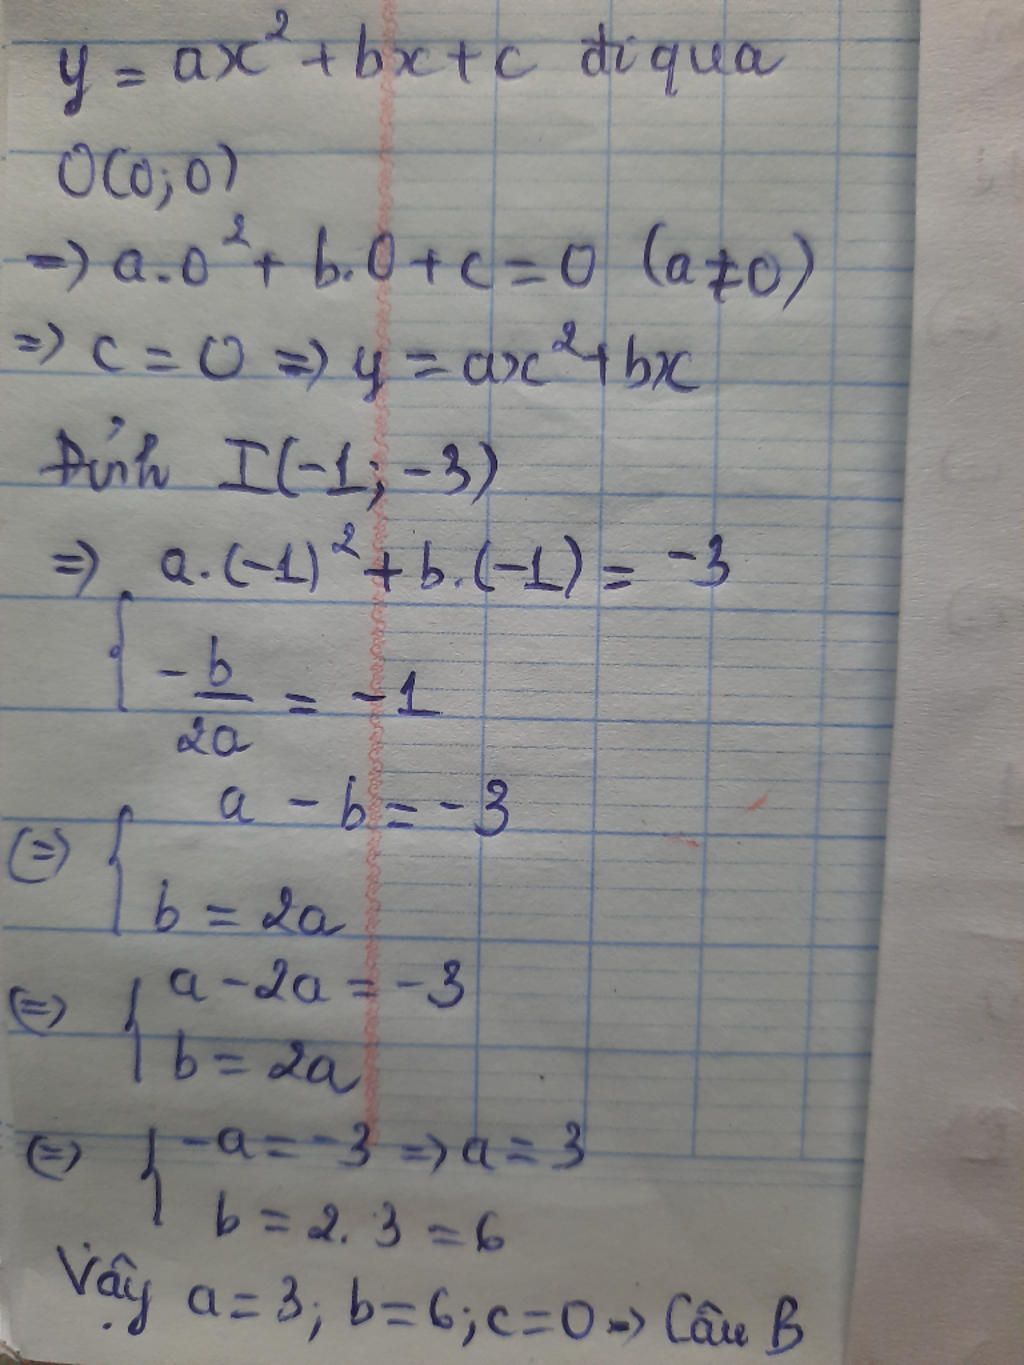 y = ax² + bx + c đi qua
O(0; 0)
=> a.0² + b.0 + c = 0 (a ≠ 0)
=> c = 0 => y = ax² + bx
Đỉnh I(-1; -3)
=> { a.(-1)² + b.(-1) = -3
-b/2a = -1
(=) { a - b = -3
b = 2a
(=) { a - 2a = -3
b = 2a
(=) { -a = -3 => a = 3
b = 2. 3 = 6
Vậy a = 3; b = 6; c = 0 => Câu B